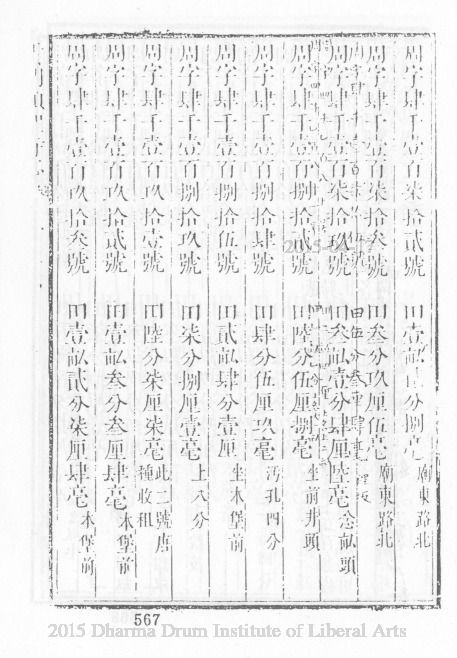 周字肆千壹百柒拾貳號 田壹畝 分捌毫 廟東路北
周字肆千壹百柒拾叁號 田叁分玖厘伍毫 廟東路北
周字肆千壹百柒拾玖號 田叁畝壹分肆厘陸毫 念畝頭
周字肆千壹百捌拾貳號 田陸分伍厘捌毫 坐前井頭
周字肆千壹百捌拾肆號 田肆分伍厘玖毫 汚孔四分
周字肆千壹百捌拾伍號 田貳畝肆分壹厘 坐本堡前
周字肆千壹百捌拾玖號 田柒分捌厘壹毫 上八分
周字肆千壹百玖拾壹號 田陸分柒厘柒毫 此二號唐種收租
周字肆千壹百玖拾貳號 田壹畝叁分叁厘肆毫 本堡前
周字肆千壹百玖拾叁號 田壹畝貳分柒厘肆毫 本堡前
567
2015 Dharma Drum Institute of Liberal Arts